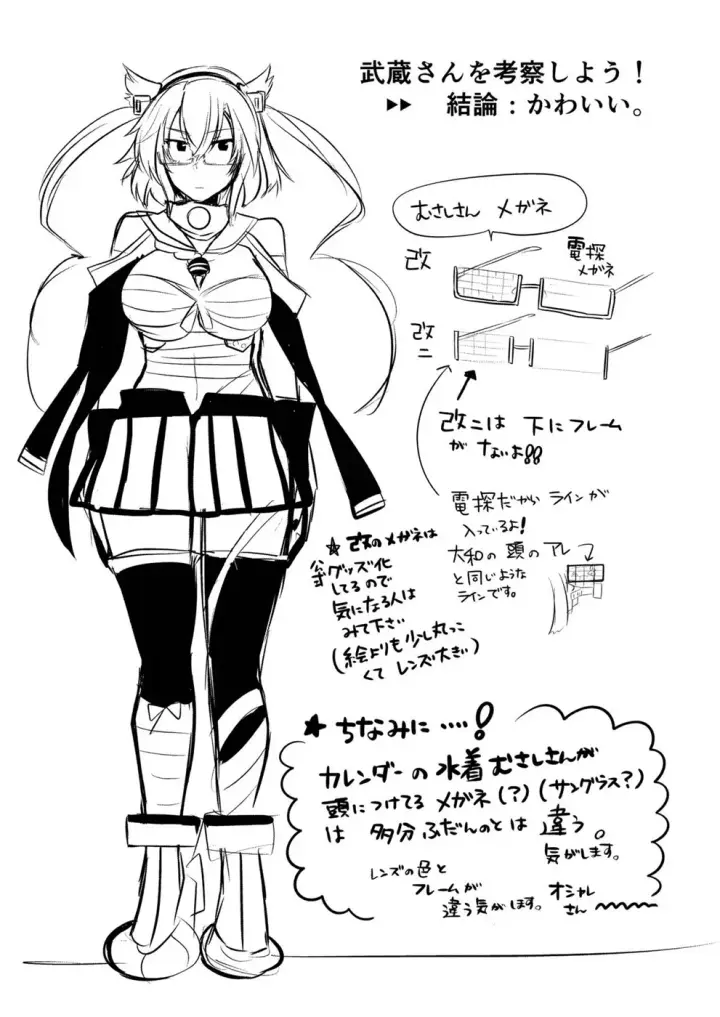 武蔵さんを考察しよう！
▶▶ 結論：かわいい。
むさしさん メガネ
改
電探
メガネ
改
二
改二は 下にフレーム
がないよ!!
電探だから ラインが
入っているよ!
大和の 頭の アレ
と同じような
ラインです。
★ 改のメガネは
公式グッズ化
してるので
気になる人は
みて下さい
(絵よりも少し丸っこ
くて レンズ大きい)
★ ちなみに ････!
カレンダーの 水着むさしさんが
頭につけてる メガネ(?)(サングラス?)
は 多分ふだんのとは 違う。
気がします。
レンズの色と
フレームが
違う気がします。
オシャレ
さん 〜〜〜